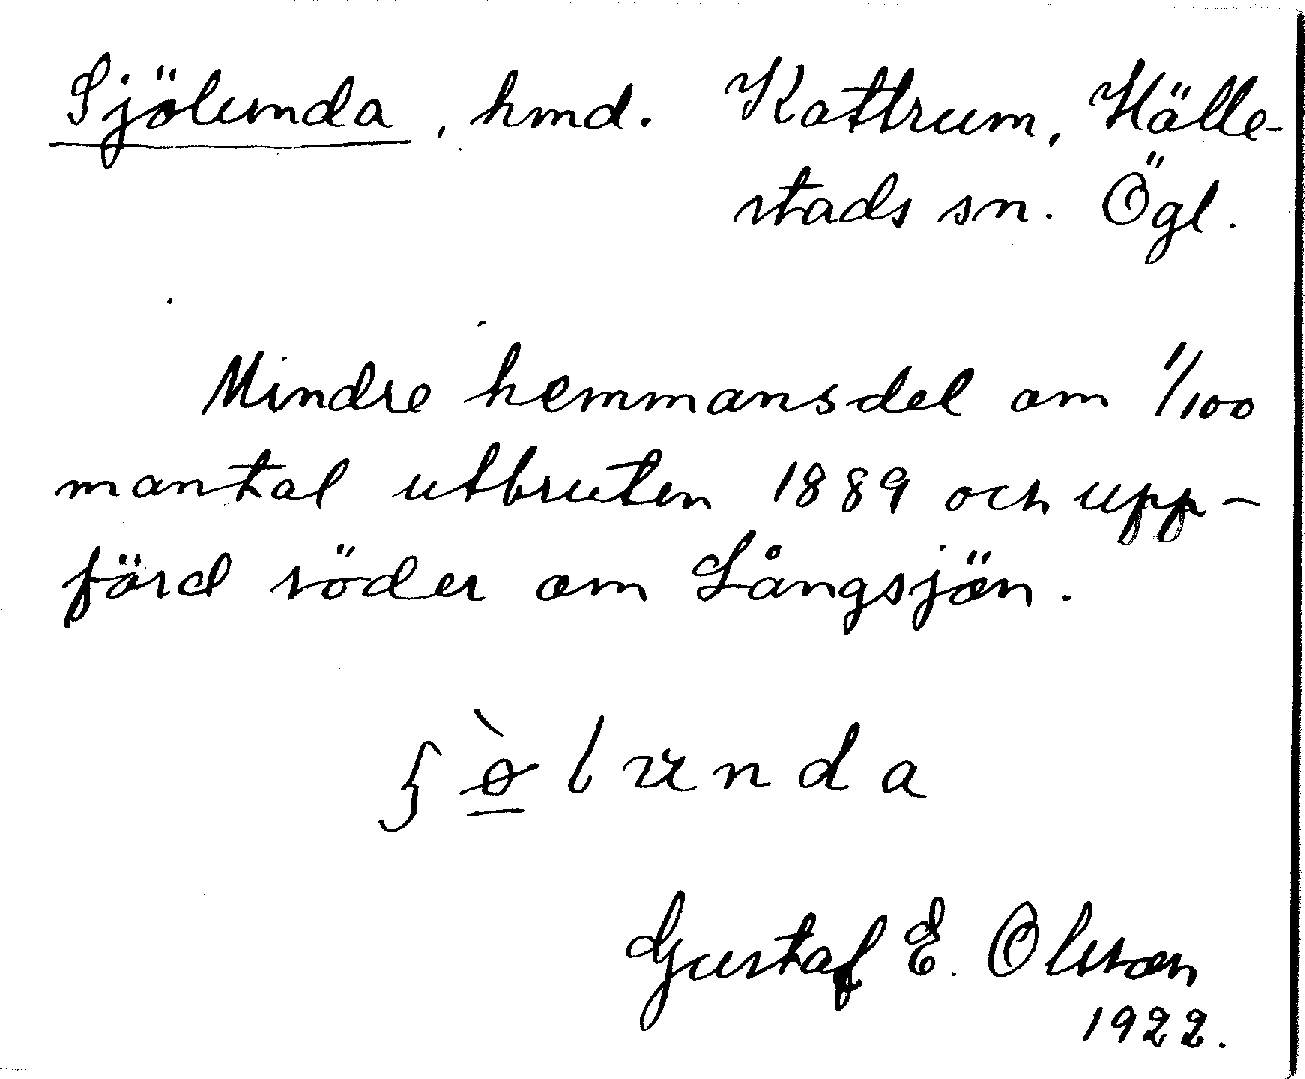 Sjölunda, hmd. Kattrum, Hälle-
stads sn. Ögl.
Mindre hemmansdel om 1/100
mantal utbruten 1889 och upp-
förd söder om Långsjön.
Gustaf E. Olsson
1922.